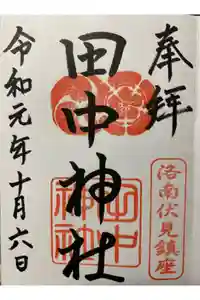 奉拝
洛南伏見鎮座
田中神社
田中神社
令和元年十月六日